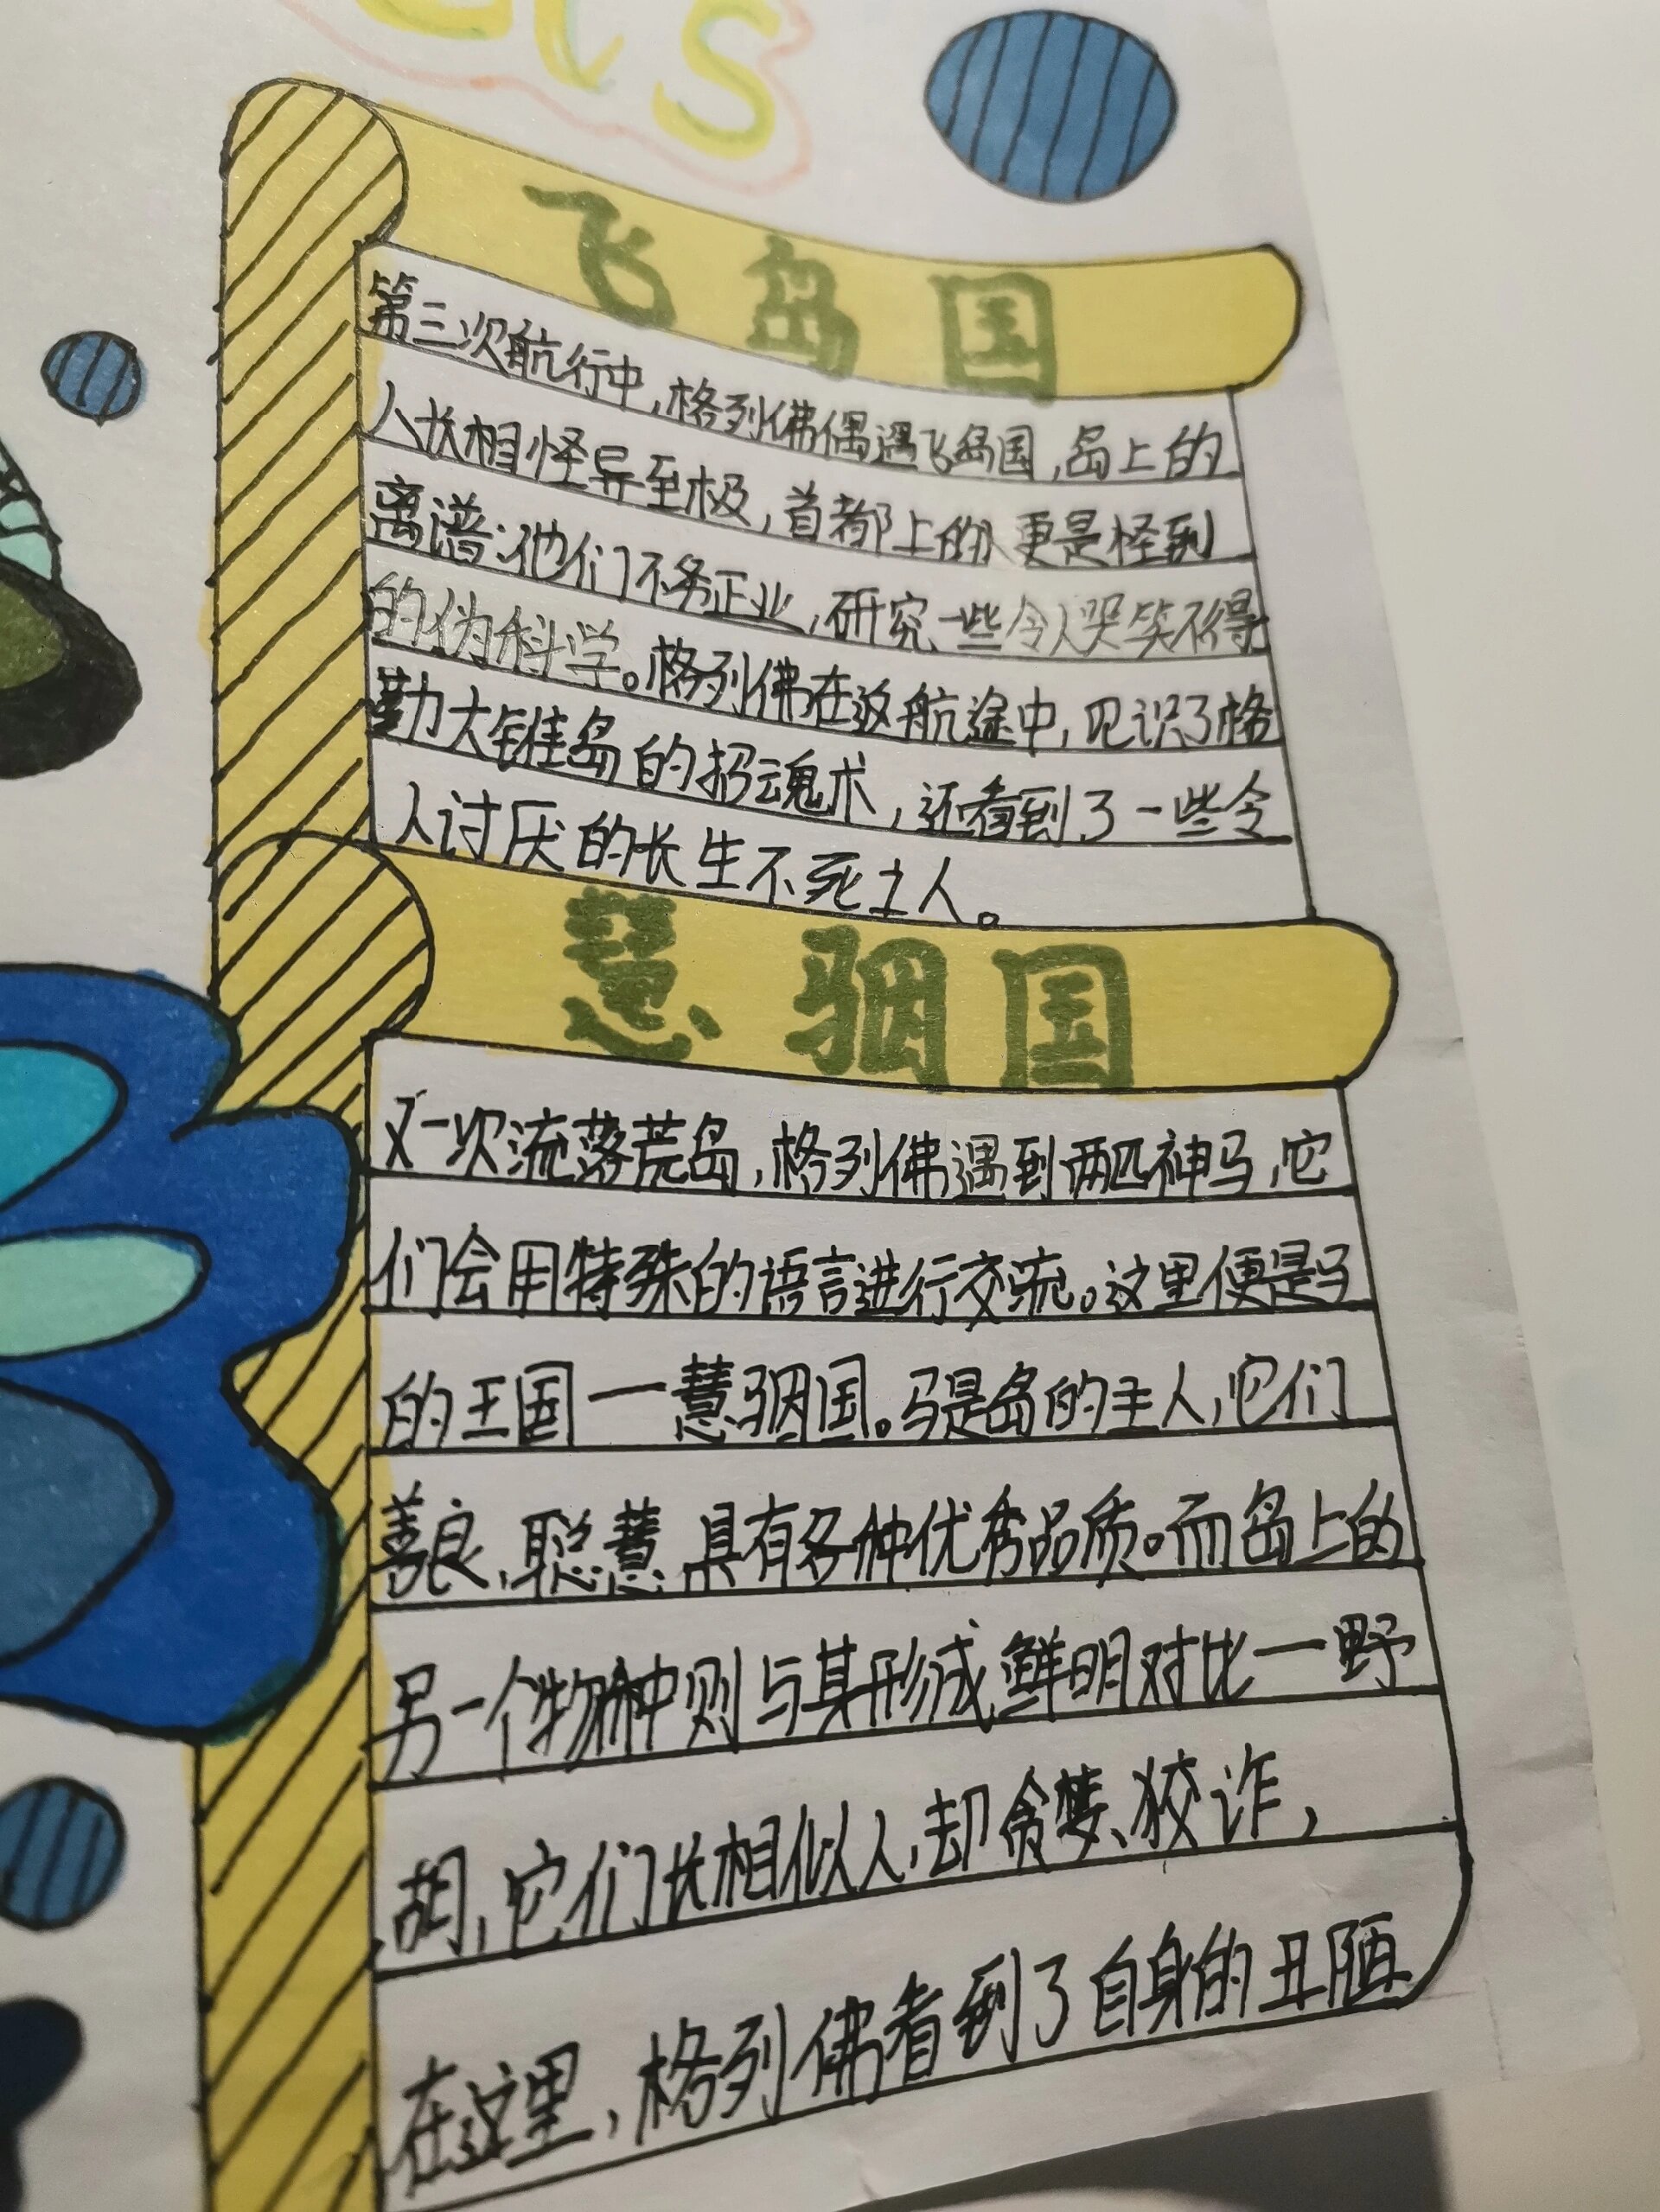 飞岛国
第三次航行中,格列佛偶遇飞岛国,岛上的
人长相怪异至极,首都上的人更是怪到
离谱:他们不务正业,研究一些令人哭笑不得
的伪科学。格列佛在返航途中,见识了格
勒大锥岛的招魂术,还看到了一些令
人讨厌的长生不死土人。
慧骃国
又一次流落荒岛,格列佛遇到两匹神马,它
们会用特殊的语言进行交流。这里便是马
的王国一慧骃国。马是岛的主人,它们
善良、聪慧,具有各种优秀品质。而岛上的
另一个物种则与其形成鲜明对比一野
胡,它们长相似人,却贪婪、狡诈,
在这里,格列佛看到了自身的丑陋